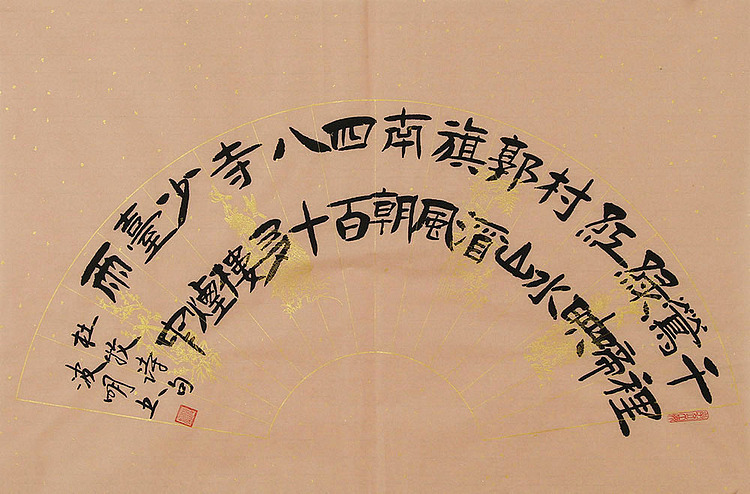 千裡
鶯啼
綠暎
紅水
村山
郭酒
旗風
南朝
四百
八十
寺多
少樓
臺煙
雨中
杜牧诗句
波明书